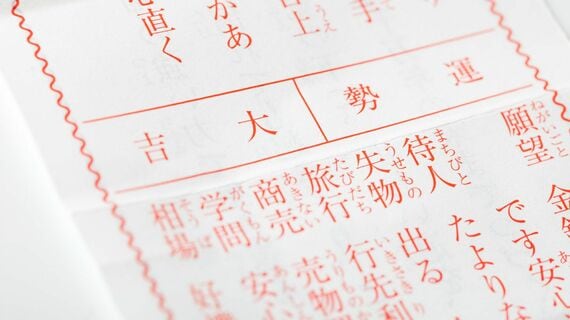 手
上
うえ
があ
直く
運勢
大吉
願望
ねがいごと
金
です安心
待人
まちびと
たよりな
失物
うせもの
出る
旅行
たびだち
行先利
いきさき
商売
あきない
売物
うりもの
学問
がくもん
安
あんしん
相場
そうば
好